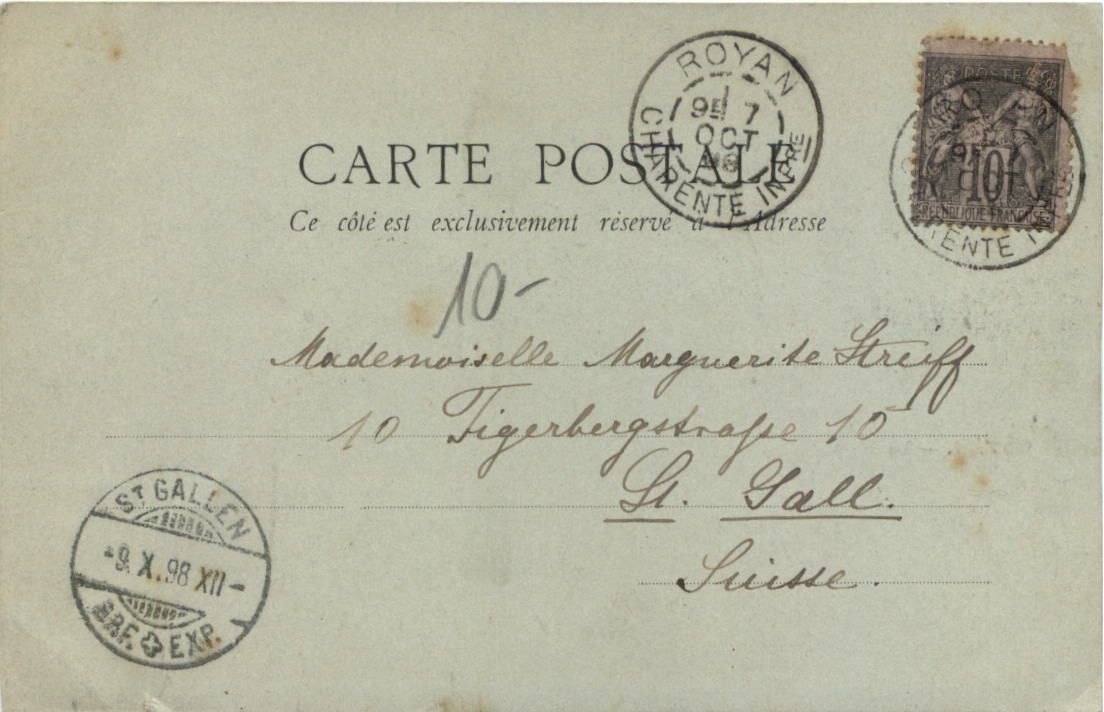 ROYAN
9E 7
OCT
98
CHARENTE INFRE
POSTES
10
REPUBLIQUE FRANCAISE
ROYAN
7
CARTE POSTALE
Ce côté est exclusivement réservé à l'Adresse
10-
Mademoiselle Marguerite Streiff
10 Tigerbergstraße 10
St. Gall.
Suisse.
ST GALLEN
-9. X. 98 XII-
BRF. EXP.